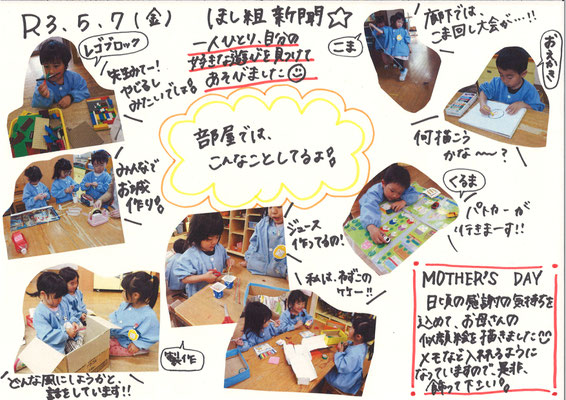 R3.5.7(金)
ほし組 新聞☆
一人ひとり、自分の
好きな遊びを見つけて
あそびました
レゴブロック
先生みてー!
やじるし
みたいでしょ。
こま
廊下では、
こま回し大会が…!!
おえかき
何描こう
かな〜?
部屋では、
こんなことしてるよ。
みんなで
お城
作り。
くるま
パトカーが
行きまーす!!
ジュース
作ってるの!
私は、ねずこの
ケーキ!!
製作
どんな風にしようかと、
話をしています!!
MOTHER'S DAY
日頃の感謝の気持ちを
込めて、お母さんの
似顔絵を描きました
メモなど入れるように
なっていますので、是非、
飾って下さい。